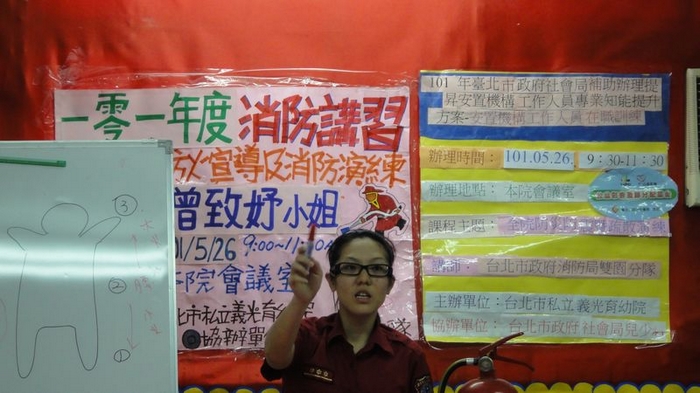 一零一年度 消防講習
宣導及消防演練
曾致妤小姐
01/5/26 9:00~11:
院會議室
北市私立義光育
協辦單
隊
101 年臺北市政府社會局補助辦理提
昇安置機構工作人員專業知能提升
方案-安置機構工作人員在職訓練
辦理時間： 101.05.26. 9：30-11：30
辦理地點： 本院會議室
課程主題：
講師： 台北市政府消防局雙園分隊
主辦單位：台北市私立義光育幼院
協辦單位：台北市政府社會局兒少
③
②
①